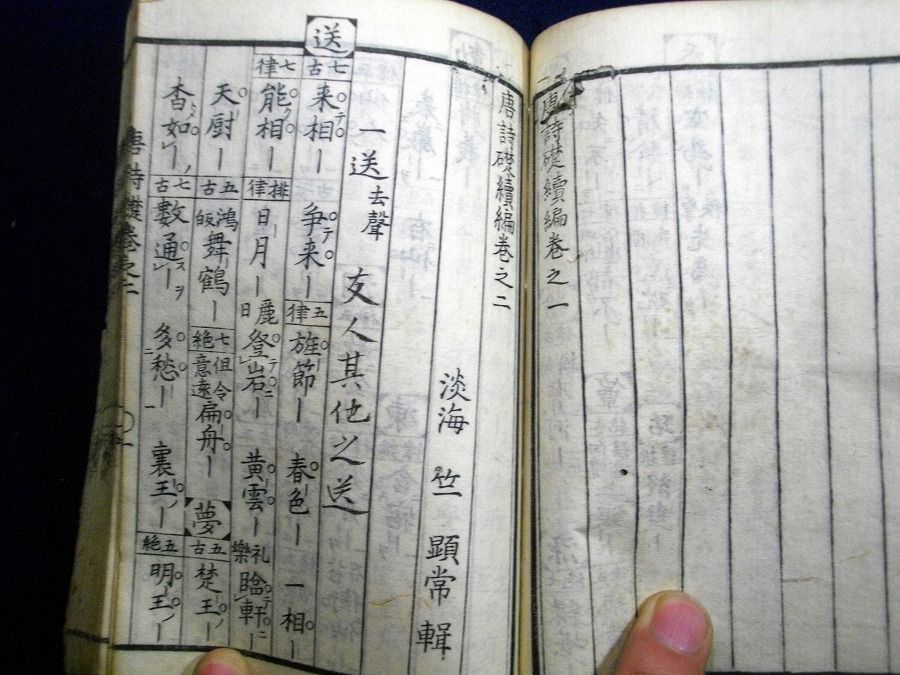 唐詩礎續編卷之一
唐詩礎續編卷之二
淡海 竺 顕常 輯
送
一送去聲 友人其他之送
七古 来テ相一 争テ来一 五律 旌節一 春色一 一相一
七律 能ク相一 排律 日月一 麗日 登テ岩ニ一 黄雲一 礼樂 臨テ軒ニ一
天厨一 五古 鴻皈 舞鶴一 七絶 但令意遠 扁舟一 夢 五古 楚王ノ一
杳如一 七古 數通スヲ一 多愁一 襄王ノ一 五絶 明王ノ一
唐詩礎卷之二